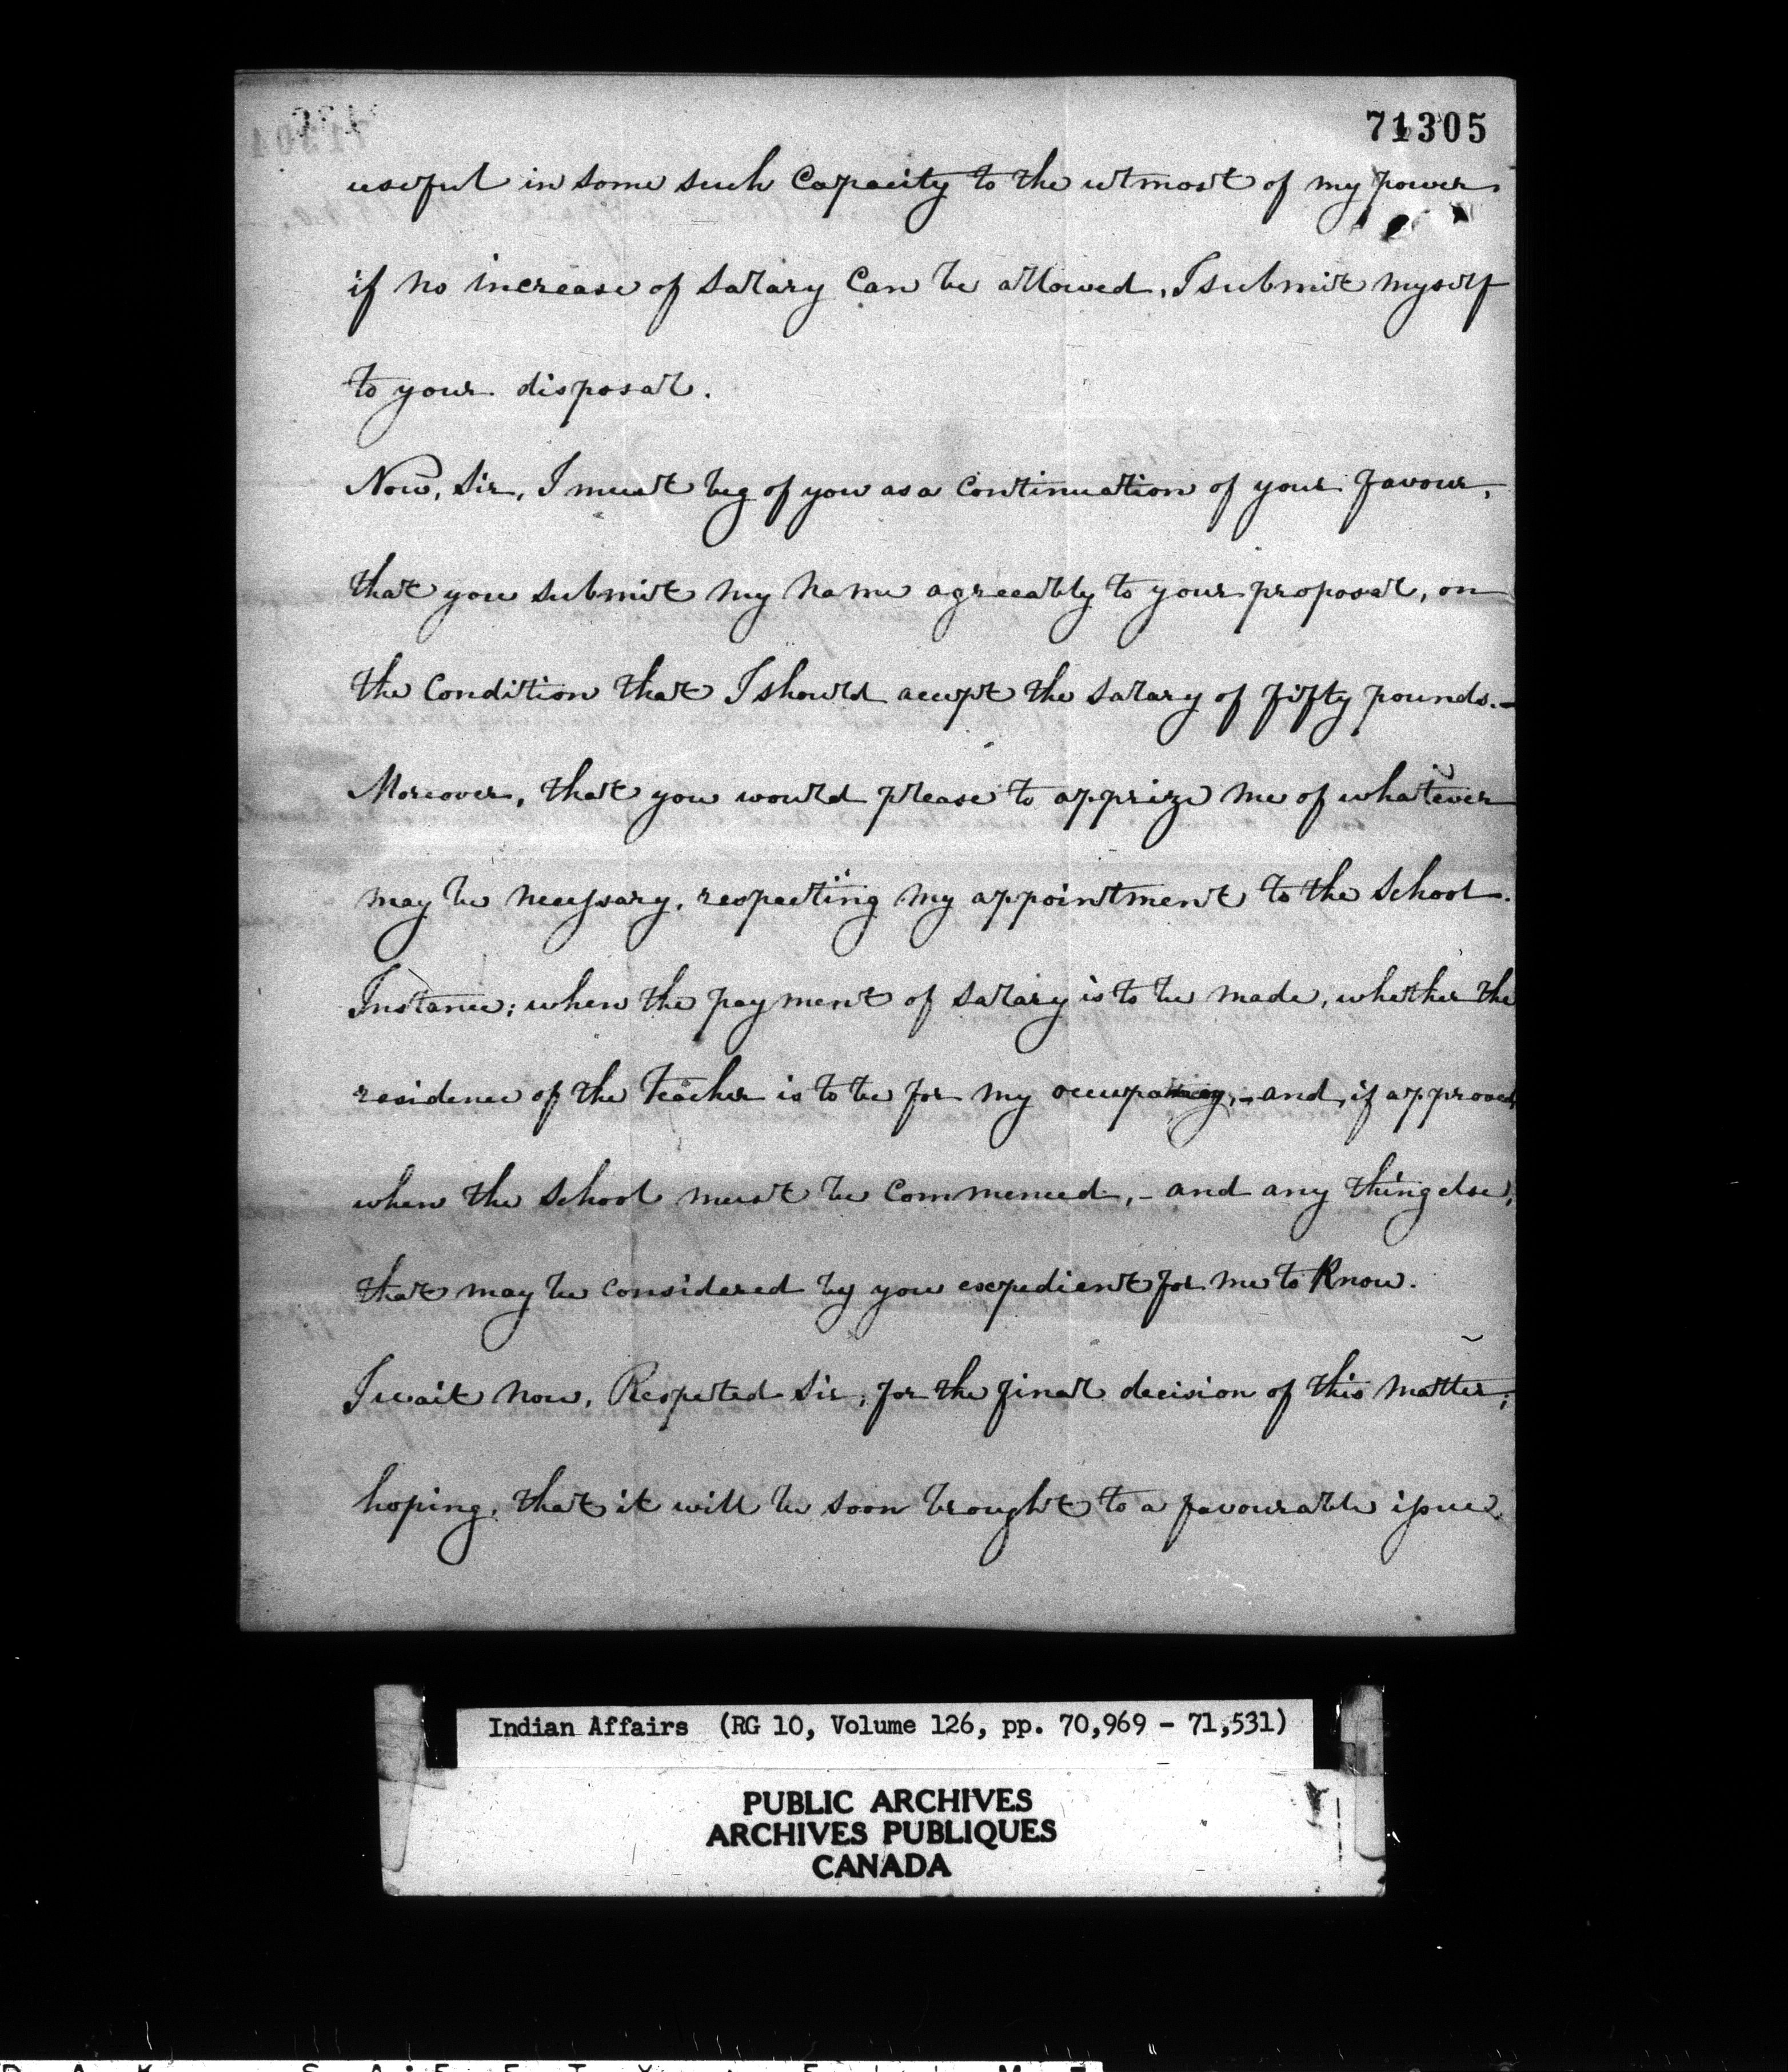 71305
useful in some such Capacity to the utmost of my power.
if no increase of salary Can be allowed, I submit myself
to your disposal.
Now, Sir, I must beg of you as a Continuation of your favour,
that you submit my name agreeably to your proposal, on
the Condition that I should accept the salary of fifty pounds.-
Moreover, that you would please to apprize me of whatever
may be necessary, respecting my appointment to the School.
Instance; when the payment of salary is to be made, whether the
residence of the Teacher is to be for my occupancy,- and, if approved
when the School must be Commenced,- and any thing else,
that may be Considered by you expedient for me to Know.
I wait now, Respected Sir, for the final decision of this matter;
hoping, that it will be soon brought to a favourable issue
Indian Affairs (RG 10, Volume 126, pp. 70,969 - 71,531)
PUBLIC ARCHIVES
ARCHIVES PUBLIQUES
CANADA